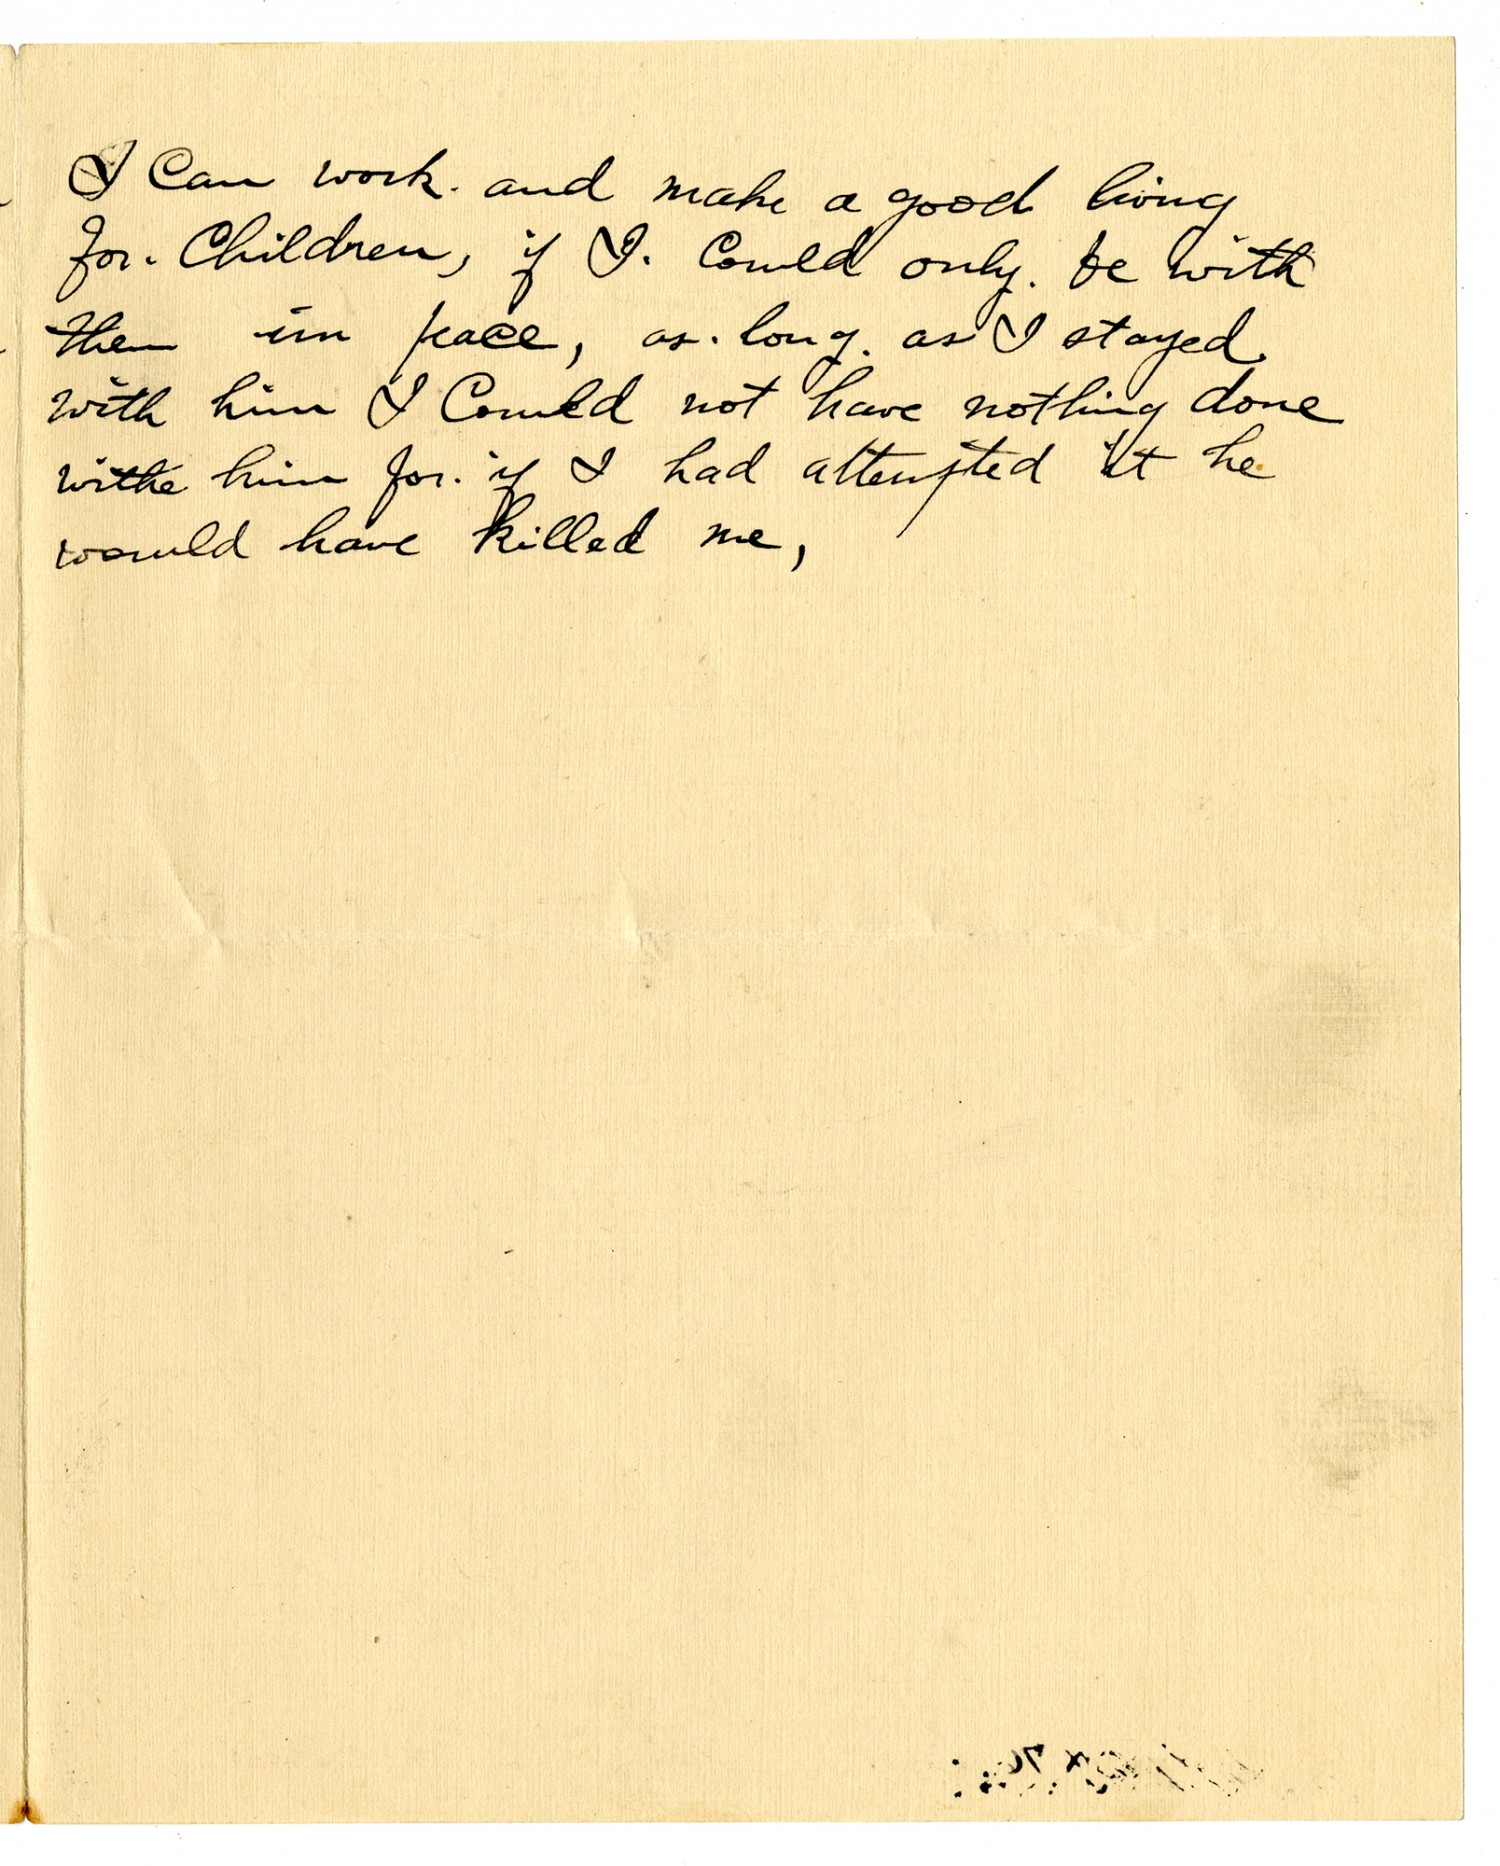 I Can work. and make a good living
for. Children, if I. Could only. be with
them in peace, as. long. as I stayed
with him I Could not have nothing done
withe him for. if I had attempted it he
would have killed me,